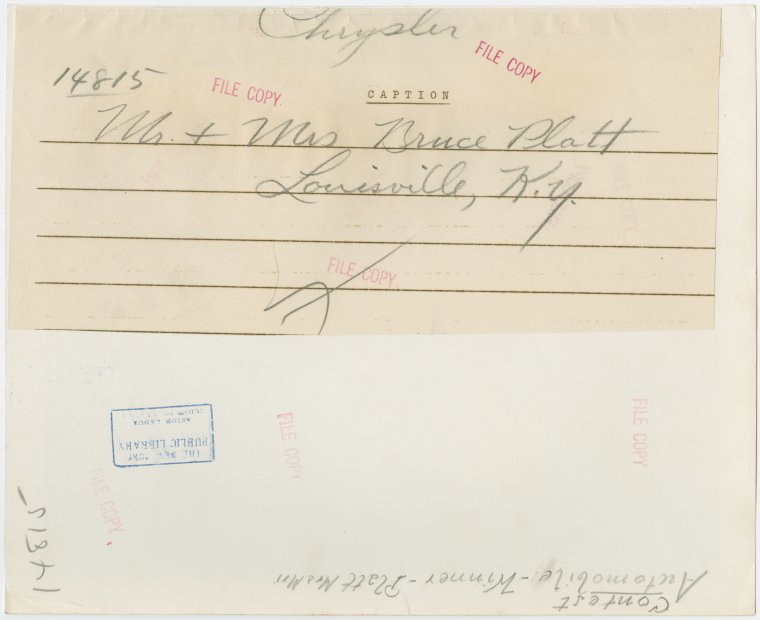 Chrysler
14815
FILE COPY
FILE COPY
CAPTION
Mr. + Mrs Bruce Platt
Louisville, K.y.
FILE COPY
THE NEW YORK
PUBLIC LIBRARY
ASTOR LENOX
FILE COPY
FILE COPY
FILE COPY
14815
Contest
Automobile - Winner - Platt Mrs Mr